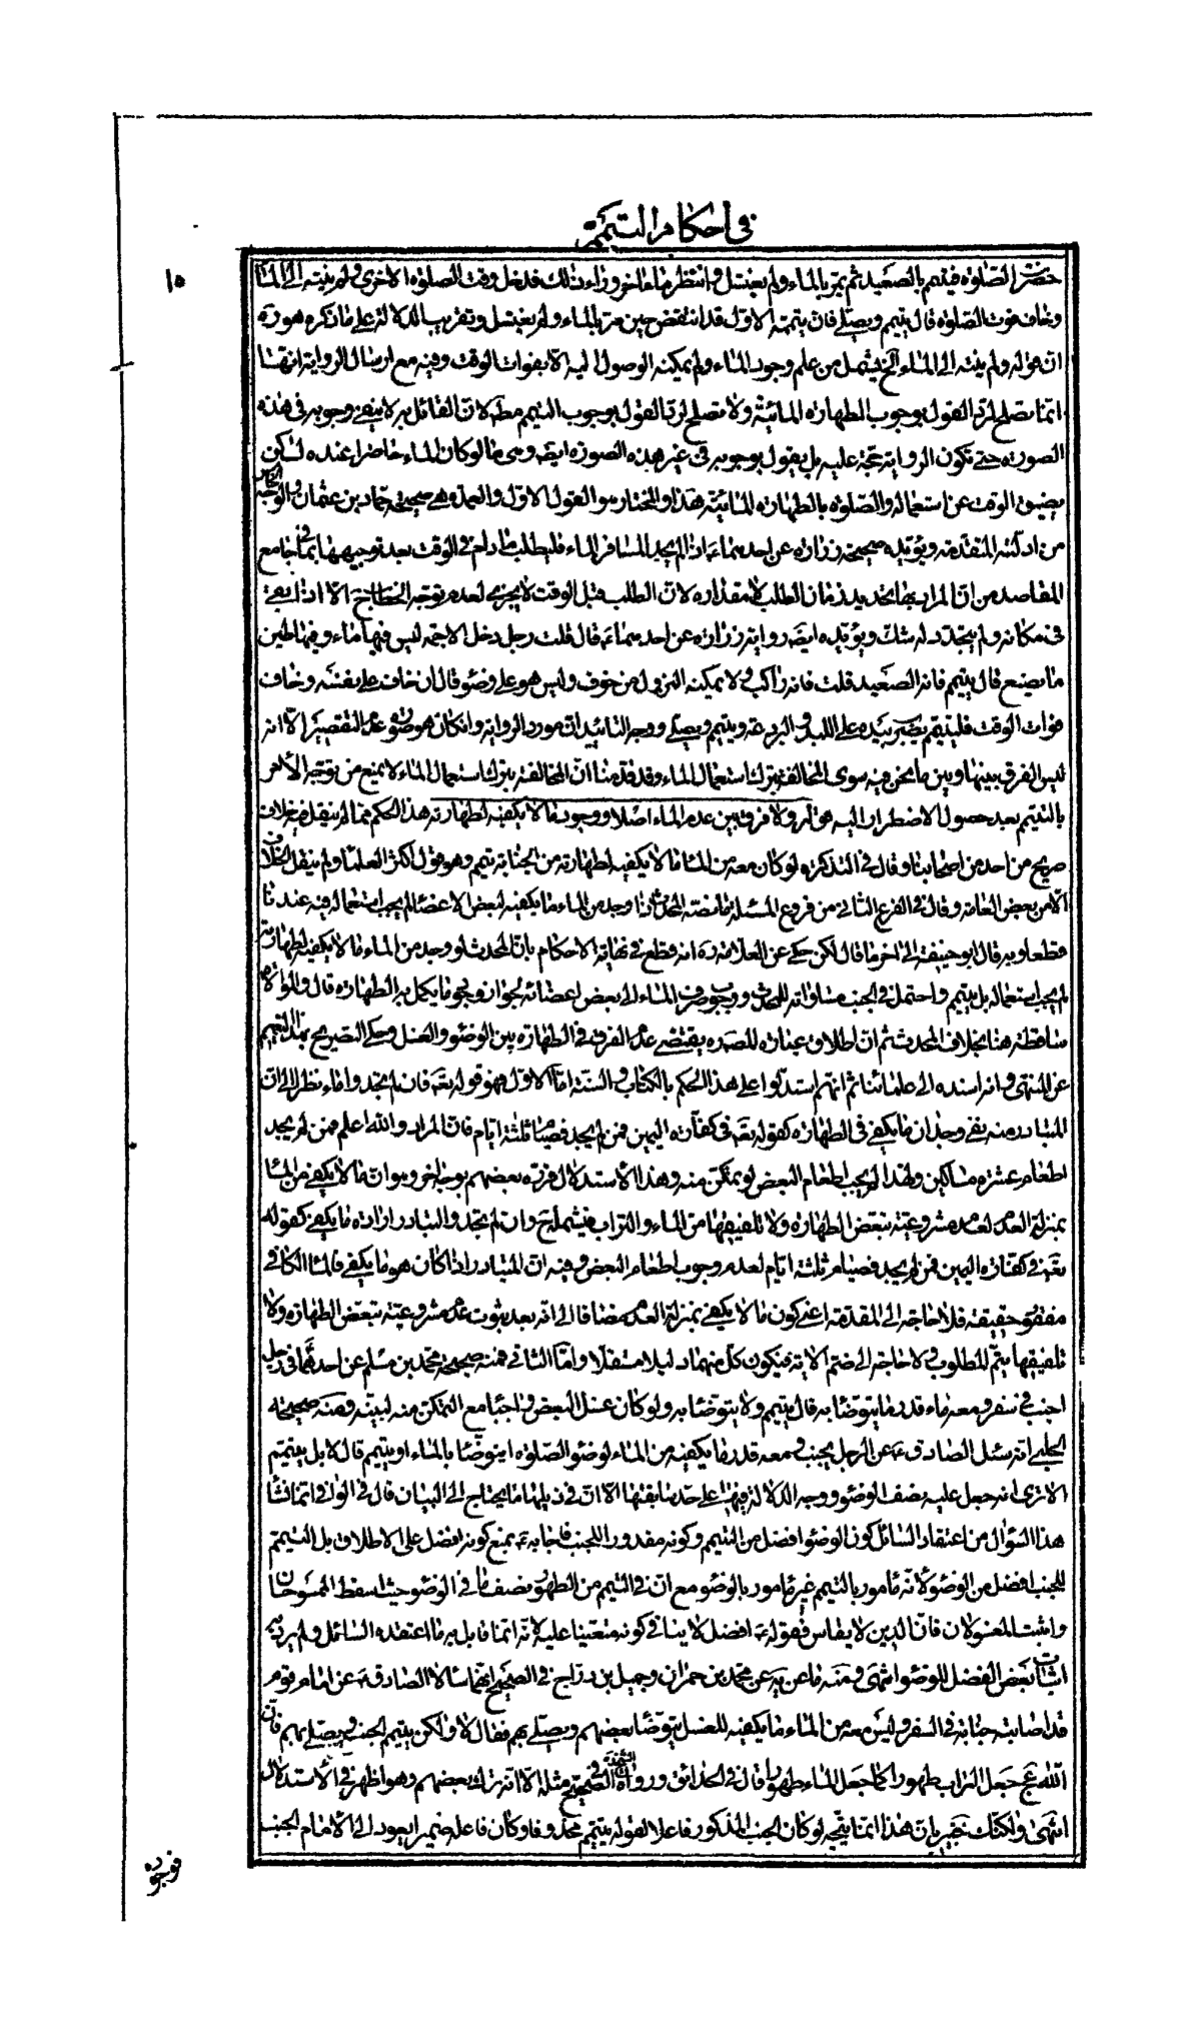 في احكام التيمم
١٥
حضرت الصّلوة فيتيمم بالصّعيد ثم يمرّ بالماء ولم يغتسل وانتظر ماء اخر وراء ذلك فدخل وقت الصلوة الاخرى ولم ينته الى الماء
وخاف فوت الصّلوة قال يتيمم ويصلّى فان تيمّمه الاوّل قد انتقض حين مرّ بالماء ولم يغتسل وتقريب الدلالة على ما ذكره هو ره
انّ قوله ولم ينته الى الماء الخ يشمل من علم وجود الماء ولم يمكنه الوصول اليه الا بفوات الوقت وفيه مع ارسال الرواية انّها
انما تصلح لردّ القول بوجوب الطهارة المائيّة ولا تصلح لردّ القول بوجوب التيمم مط لانّ القائل به لا ينفى وجوبه في هذه
الصورة حتى تكون الرواية حجّة عليه بل يقول بوجوبه في غير هذه الصورة ايضا وهى ما لو كان الماء حاضرا عنده لكن
يضيق الوقت عن استعماله والصّلوة بالطهارة المائيّة هذا والمختار هو القول الاوّل والعمدة هي صحيحة حماد بن عثمان والوجه الخامس
من ادلّته المتقدّمة ويؤيّده صحيحة زرارة عن احدهما ع اذا لم يجد المسافر الماء فليطلب ما دام في الوقت بعد توجيهها بما في جامع
المقاصد من انّ المراد بها تحديد زمان الطلب لا مقداره لانّ الطلب قبل الوقت لا يجزى لعدم توجّه الخطاب ح الّا اذا بقى
في مكانه ولم يتجدّد له شك ويؤيّده ايضا رواية زرارة عن احدهما ع قال قلت رجل دخل الاجمة ليس فيها ماء وفيها طين
ما يصنع قال يتيمم فانه الصّعيد قلت فانه راكب ولا يمكنه النزول من خوف وليس هو على وضوء قال ان خاف على نفسه وخاف
فوات الوقت فليتيمّم يضرب بيده على اللبد والبرذعة ويتيمم ويصلّى ووجه التاييد ان مورد الرواية وان كان هو صورة عدم التقصير الّا انه
ليس الفرق بينها وبين ما نحن فيه سوى المخالفة بترك استعمال الماء وقد قدّمنا انّ المخالفة بترك استعمال الماء لا تمنع من توجّه الامر
بالتيمّم بعد حصول الاضطرار اليه قوله ولا فرق بين عدم الماء اصلا ووجود ما لا يكفيه لطهارته هذا الحكم مما لم ينقل فيه خلاف
صريح من احد من اصحابنا وقال في التذكرة لو كان معه من الماء ما لا يكفيه لطهارته من الجنابة تيمم وهو قول اكثر العلماء ولم ينقل الخلاف
الّا من بعض العامة وقال في الفرع الثاني من فروع المسئلة ما نصّه المحدث اذا وجد من الماء ما يكفيه لبعض الاعضاء لم يجب استعماله فيه عندنا
قطعا وبه قال ابو حنيفة الى اخر ما قال لكن حكى عن العلّامة ره انه قطع في نهاية الاحكام بان المحدث لو وجد من الماء ما لا يكفيه لطهارته
لم يجب استعماله بل يتيمم واحتمل في الجنب مساواته للمحدث ووجوب صرف الماء الى بعض اعضائه لجواز وجود ما يكمل به الطهارة قال والموالاة
ساقطة هنا بخلاف المحدث ثم انّ اطلاق عبارة المصنّف ره يقتضى عدم الفرق في الطهارة بين الوضوء والغسل وحكى التصريح بهذا التعميم
عن المنتهى وانه اسنده الى علمائنا ثم انهم استدلّوا على هذا الحكم بالكتاب والسّنة امّا الاوّل فهو قوله تعه فان لم تجدوا ماء نظرا الى ان
المتبادر منه نفى وجدان ما يكفى في الطهارة كقوله تعه في كفّارة اليمين فمن لم يجد فصيام ثلثة ايّام فانّ المراد والله اعلم فمن لم يجد
اطعام عشرة مساكين ولهذا لم يجب اطعام البعض لو تمكّن منه وهذا الاستدلال قرّره بعضهم بوجه اخر وهو ان ما لا يكفى من الماء
بمنزلة العدم لعدم مشروعيّة تبعّض الطهارة ولا تلفيقها من الماء والتراب فيشمله ح وان لم تجدوا لتبادر ارادة ما يكفى كقوله
تعه في كفّارة اليمين فمن لم يجد فصيام ثلثة ايّام لعدم وجوب اطعام البعض وفيه انّ المتبادر اذا كان هو ما يكفى فالماء الكافي
مفقود حقيقة فلا حاجة الى المقدّمة اعنى كون ما لا يكفى بمنزلة العدم مضافا الى انه بعد ثبوت عدم مشروعيّة تبعّض الطهارة ولا
تلفيقها يتمّ المطلوب ولا حاجة الى ضمّ الاية فيكون كلّ منهما دليلا مستقلا وامّا الثاني فمنه صحيحة محمّد بن مسلم عن احدهما في رجل
اجنب في سفر ومعه ماء قدر ما يتوضّأ به قال يتيمم ولا يتوضّأ به ولو كان غسل البعض واجبا مع التمكّن منه لبيّنه ومنه صحيحة
الحلبي انه سئل الصّادق ع عن الرجل يجنب ومعه قدر ما يكفيه من الماء لوضوء الصّلوة ايتوضّأ بالماء او يتيمم قال لا بل يتيمّم
الا ترى انه جعل عليه نصف الوضوء ووجه الدلالة فيها على حدّ سابقتها الّا انّ في ذيلها ما يحتاج الى البيان قال في الوافي انما نشأ
هذا السّؤال من اعتقاد السّائل كون الوضوء افضل من التيمم وكونه مقدورا للجنب فاجابه ع بمنع كونه افضل على الاطلاق بل التيمّم
للجنب افضل من الوضوء لانّه مامور بالتيمم غير مامور بالوضوء مع انّ في التيمم من الطهور نصف ما في الوضوء حيث اسقط الممسوحان
واثبت المغسولان فانّ الدين لا يقاس فقوله ع افضل لا ينافي كونه متعيّنا عليه لانّه انّما قابل به ما اعتقده السّائل ولم يرد به
اثبات بعض الفضل للوضوء انتهى ومنه ما عن يه عن محمّد بن حمران وجميل بن درّاج في الصّحيح انهما سالا الصّادق ع عن امام قوم
قد اصابته جنابة في السفر وليس معه من الماء ما يكفيه للغسل يتوضّأ بعضهم ويصلّى بهم فقال لا ولكن يتيمم الجنب ويصلّى بهم فانّ
الله عج جعل التراب طهورا كما جعل الماء طهورا قال في الحدائق ورواه الشيخ في الصّحيح مثله الا انه ترك بعضهم وهو اظهر في الاستدلال
انتهى وانت خبير بان هذا انّما يتّجه لو كان الجنب المذكور فاعلا لقوله يتيمّم محذوفا وكان فاعله ضميرا يعود الى الامام الجنب
فوجوده